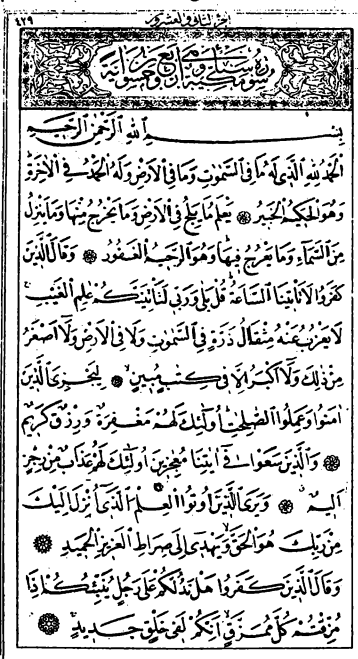 الجزء الثاني والعشرون
٤٢٩
سورة سبأ مكية وهي أربع وخمسون آية
بِسْمِ اللّٰهِ الرَّحْمٰنِ الرَّحِيمِ
اَلْحَمْدُ لِلّٰهِ الَّذ۪ي لَهُ مَا فِي السَّمٰوَاتِ وَمَا فِي الْاَرْضِ وَلَهُ الْحَمْدُ فِي الْاٰخِرَةِ
وَهُوَ الْحَك۪يمُ الْخَب۪يرُ ۞ يَعْلَمُ مَا يَلِجُ فِي الْاَرْضِ وَمَا يَخْرُجُ مِنْهَا وَمَا يَنْزِلُ
مِنَ السَّمَٓاءِ وَمَا يَعْرُجُ ف۪يهَا وَهُوَ الرَّح۪يمُ الْغَفُورُ ۞ وَقَالَ الَّذ۪ينَ
كَفَرُوا لَا تَأْت۪ينَا السَّاعَةُ قُلْ بَلٰى وَرَبّ۪ي لَتَأْتِيَنَّكُمْ عَالِمِ الْغَيْبِ
لَا يَعْزُبُ عَنْهُ مِثْقَالُ ذَرَّةٍ فِي السَّمٰوَاتِ وَلَا فِي الْاَرْضِ وَلَٓا اَصْغَرُ
مِنْ ذٰلِكَ وَلَٓا اَكْبَرُ اِلَّا ف۪ي كِتَابٍ مُب۪ينٍ ۞ لِيَجْزِيَ الَّذ۪ينَ
اٰمَنُوا وَعَمِلُوا الصَّالِحَاتِ اُولٰٓئِكَ لَهُمْ مَغْفِرَةٌ وَرِزْقٌ كَر۪يمٌ
۞ وَالَّذ۪ينَ سَعَوْا ف۪ٓي اٰيَاتِنَا مُعَاجِز۪ينَ اُولٰٓئِكَ لَهُمْ عَذَابٌ مِنْ رِجْزٍ
اَل۪يمٌ ۞ وَيَرَى الَّذ۪ينَ اُوتُوا الْعِلْمَ الَّذ۪ٓي اُنْزِلَ اِلَيْكَ
مِنْ رَبِّكَ هُوَ الْحَقَّ وَيَهْد۪ٓي اِلٰى صِرَاطِ الْعَز۪يزِ الْحَم۪يدِ ۞
وَقَالَ الَّذ۪ينَ كَفَرُوا هَلْ نَدُلُّكُمْ عَلٰى رَجُلٍ يُنَبِّئُكُمْ اِذَا
مُزِّقْتُمْ كُلَّ مُمَزَّقٍ اِنَّكُمْ لَف۪ي خَلْقٍ جَد۪يدٍ ۞